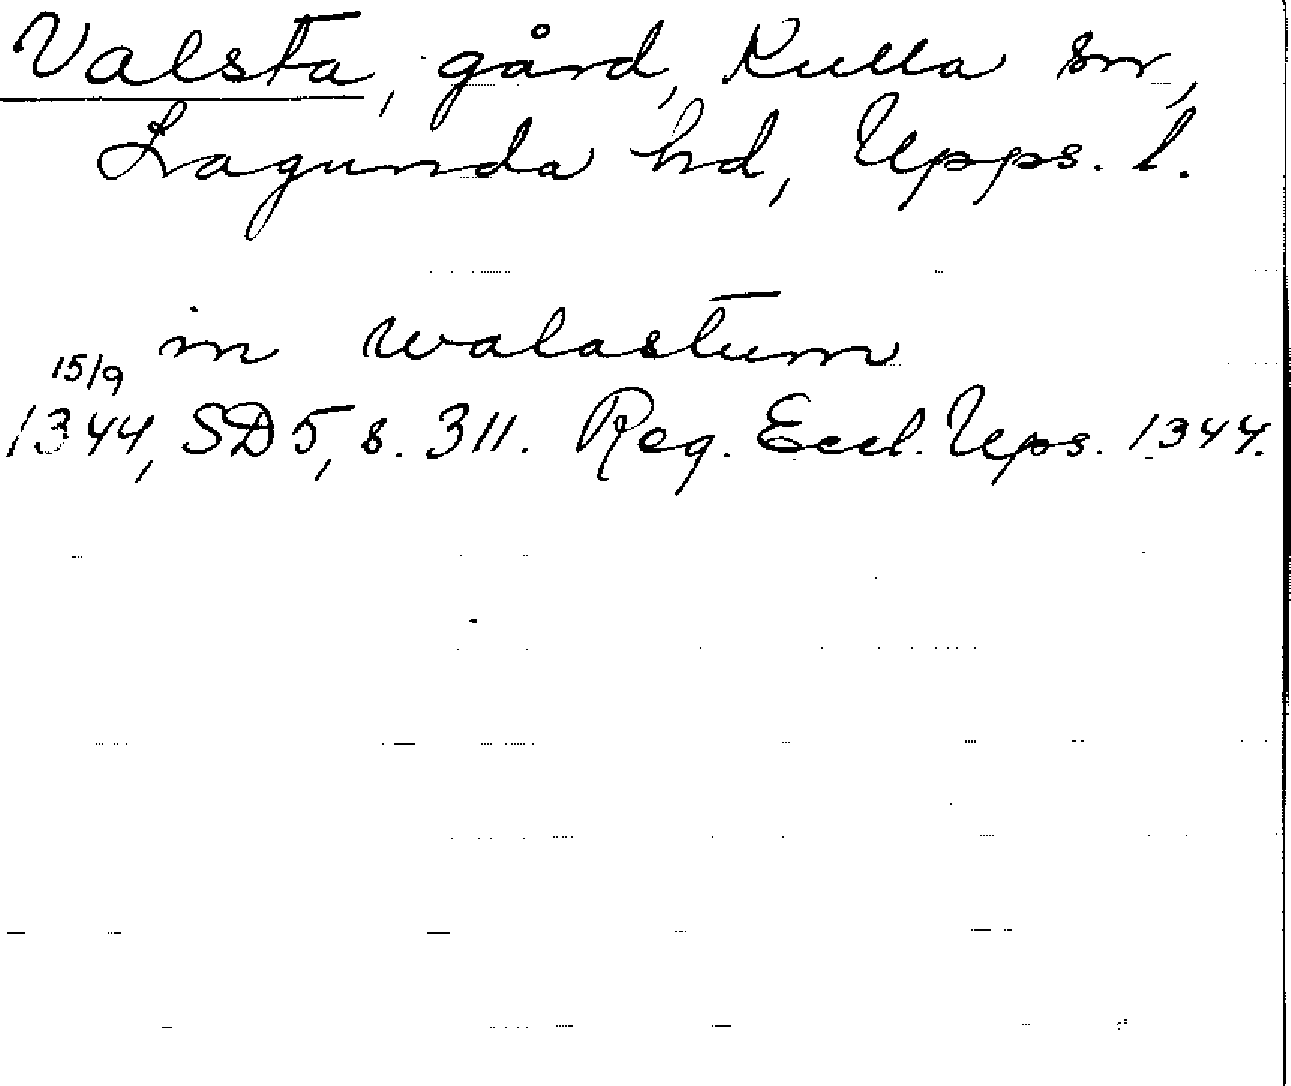 Valsta, gård, Kulla sn,
Lagunda hd, Upps. l.
in walastum
15/9
1344, SD 5, s. 311. Reg. Eccl. Ups. 1344.